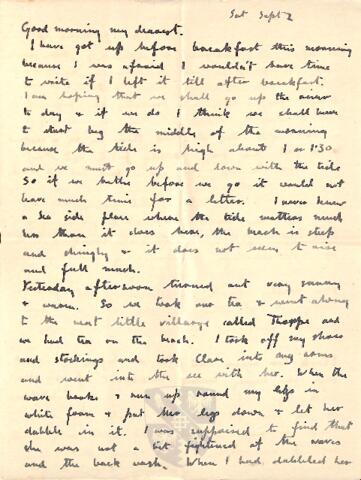 Sat Sept 2
Good morning my dearest.
I have got up before breakfast this morning
because I was afraid I wouldn't have time
to write if I left it till after breakfast.
I am hoping that we shall go up the river
to day & if we do I think we shall have
to start by the middle of the morning
because the tide is high about 1 or 1.30
and we must go up and down with the tide
So if we bathe before we go it would not
leave much time for a letter. I never knew
a sea side place where the tide matters much
less than it does here, the beach is steep
and shingly & it does not seem to rise
and fall much.
Yesterday afternoon turned out very sunny
& warm. So we took our tea & went along
to the next little village called Thorpe and
we had tea on the beach. I took off my shoes
and stockings and took Clare into my arms
and went into the sea with her. When the
wave broke & ran up round my legs in
white foam I put her legs down & let her
dabble in it. I was surprised to find that
she was not a bit frightened of the waves
and the back wash. When I had dabbled her